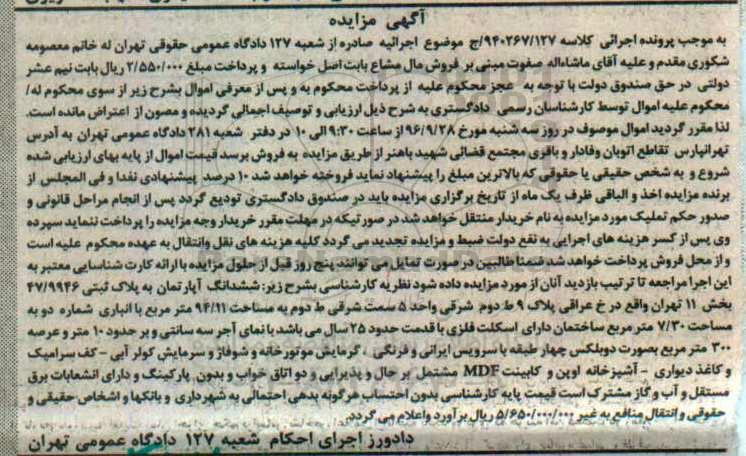 آگهی مزایده
به موجب پرونده اجرائی کلاسه ۹۴۰۲۶۷/۱۲۷/ج موضوع اجرائیه صادره از شعبه ۱۲۷ دادگاه عمومی حقوقی تهران له خانم معصومه
شکوری مقدم و علیه آقای ماشاءاله صفوت مبنی بر فروش مال مشاع بابت اصل خواسته و پرداخت مبلغ ۲/۵۵۰/۰۰۰ ریال بابت نیم عشر
دولتی در حق صندوق دولت با توجه به عجز محکوم علیه از پرداخت محکوم به و پس از معرفی اموال بشرح زیر از سوی محکوم له/
محکوم علیه اموال توسط کارشناسان رسمی دادگستری به شرح ذیل ارزیابی و توصیف اجمالی گردیده و مصون از اعتراض مانده است.
لذا مقرر گردید اموال موصوف در روز سه شنبه مورخ ۹۶/۹/۲۸ از ساعت ۹:۳۰ الی ۱۰ در دفتر شعبه ۲۸۱ دادگاه عمومی تهران به آدرس
تهرانپارس تقاطع اتوبان وفادار و باقری مجتمع قضائی شهید باهنر از طریق مزایده به فروش برسد قیمت اموال از پایه بهای ارزیابی شده
شروع و به شخص حقیقی یا حقوقی که بالاترین مبلغ را پیشنهاد نماید فروخته خواهد شد ۱۰ درصد پیشنهادی نقدا و فی المجلس از
برنده مزایده اخذ و الباقی ظرف یک ماه از تاریخ برگزاری مزایده باید در صندوق دادگستری تودیع گردد پس از انجام مراحل قانونی و
صدور حکم تملیک مورد مزایده به نام خریدار منتقل خواهد شد در صورتیکه در مهلت مقرر خریدار وجه مزایده را پرداخت ننماید سپرده
وی پس از کسر هزینه های اجرایی به نفع دولت ضبط و مزایده تجدید می گردد کلیه هزینه های نقل وانتقال به عهده محکوم علیه است
و از محل فروش پرداخت خواهد شد ضمنا طالبین در صورت تمایل می توانند پنج روز قبل از حلول مزایده با ارائه کارت شناسایی معتبر به
این اجرا مراجعه تا ترتیب بازدید آنان از مورد مزایده داده شود نظریه کارشناسی بشرح زیر: ششدانگ آپارتمان به پلاک ثبتی ۴۷/۹۹۴۶
بخش ۱۱ تهران واقع در خ عراقی پلاک ۹ ط دوم شرقی واحد ۵ سمت شرقی ط دوم به مساحت ۹۴/۱۱ متر مربع با انباری شماره دو به
مساحت ۷/۳۰ متر مربع ساختمان دارای اسکلت فلزی با قدمت حدود ۲۵ سال می باشد با نمای آجر سه سانتی و بر حدود ۱۰ متر و عرصه
۳۰۰ متر مربع بصورت دوبلکس چهار طبقه با سرویس ایرانی و فرنگی ، گرمایش موتورخانه و شوفاژ و سرمایش کولر آبی - کف سرامیک
و کاغذ دیواری - آشپزخانه اوپن و کابینت MDF مشتمل بر حال و پذیرایی و دو اتاق خواب و بدون پارکینگ و دارای انشعابات برق
مستقل و آب و گاز مشترک است قیمت پایه کارشناسی بدون احتساب هرگونه بدهی احتمالی به شهرداری و بانکها و اشخاص حقیقی و
حقوقی و انتقال منافع به غیر ۵/۶۵۰/۰۰۰/۰۰۰ ریال برآورد واعلام می گردد.
دادورز اجرای احکام شعبه ۱۲۷ دادگاه عمومی تهران